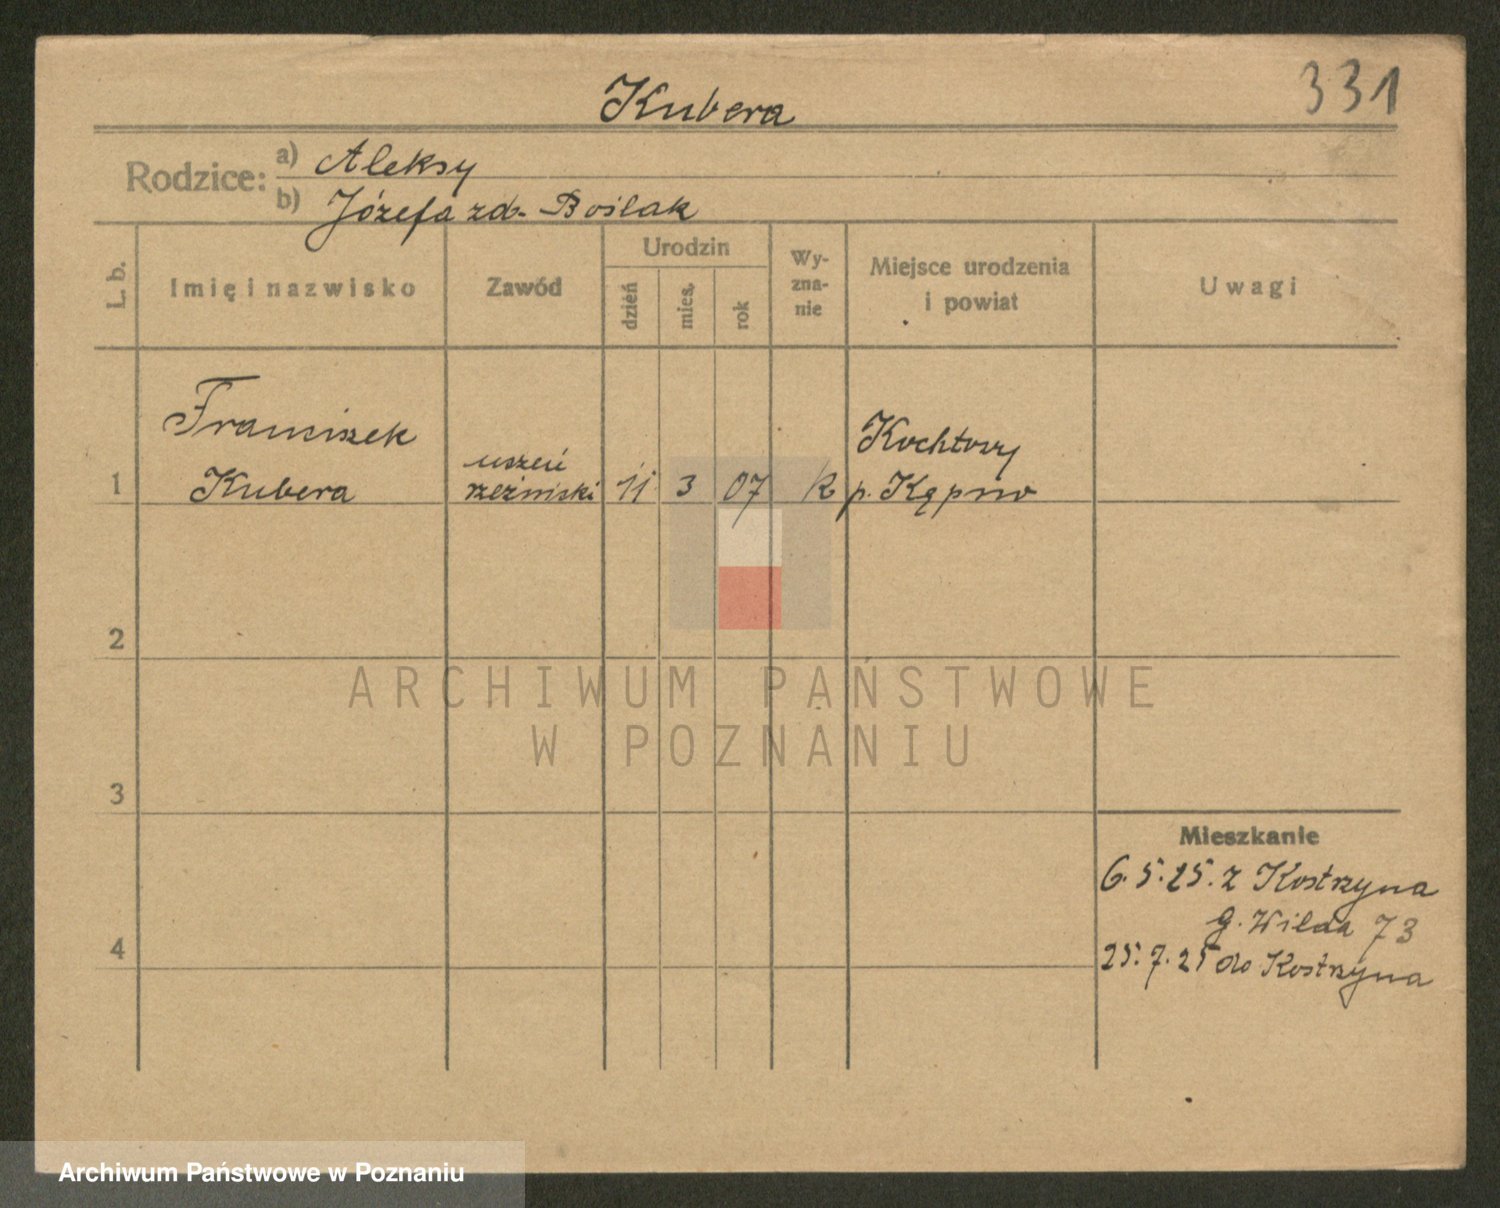 331
Kubera
Rodzice: a) Aleksy
b) Józefa zd. Boślak
L. b.
Imię i nazwisko
Zawód
Urodzin
dzień
mies.
rok
Wy-
zna-
nie
Miejsce urodzenia
i powiat
Uwagi
Franciszek
Kochtowy
1 Kubera
uczeń
rzeźnicki 11 3 07 k p. Kępno
2
ARCHIWUM PAŃSTWOWE
W POZNANIU
3
Mieszkanie
6.5.25. z Kostrzyna
g. Wilda 73
4
25.7.25 do Kostrzyna
Archiwum Państwowe w Poznaniu